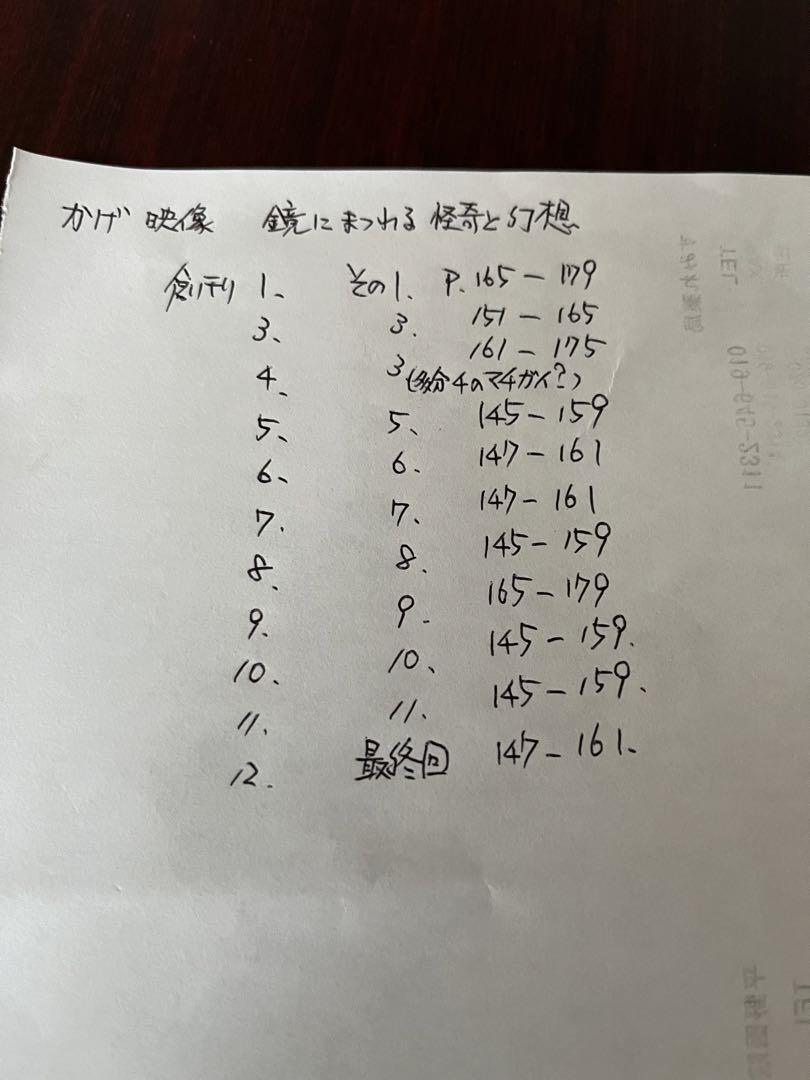 かげ 映像 鏡にまつわる 怪奇と幻想
創刊 1、 その1. P. 165 – 179
3、 3. 151 – 165
4、 3 (多分4のマチガイ?) 161 – 175
5、 5、 145 – 159
6、 6. 147 – 161
7. 7. 147 – 161
8. 8. 145 – 159
9. 9. 165 – 179
10. 10、 145 – 159.
11. 11. 145 – 159.
12. 最終回 147 – 161.
TEL
019-645-2311
TEL